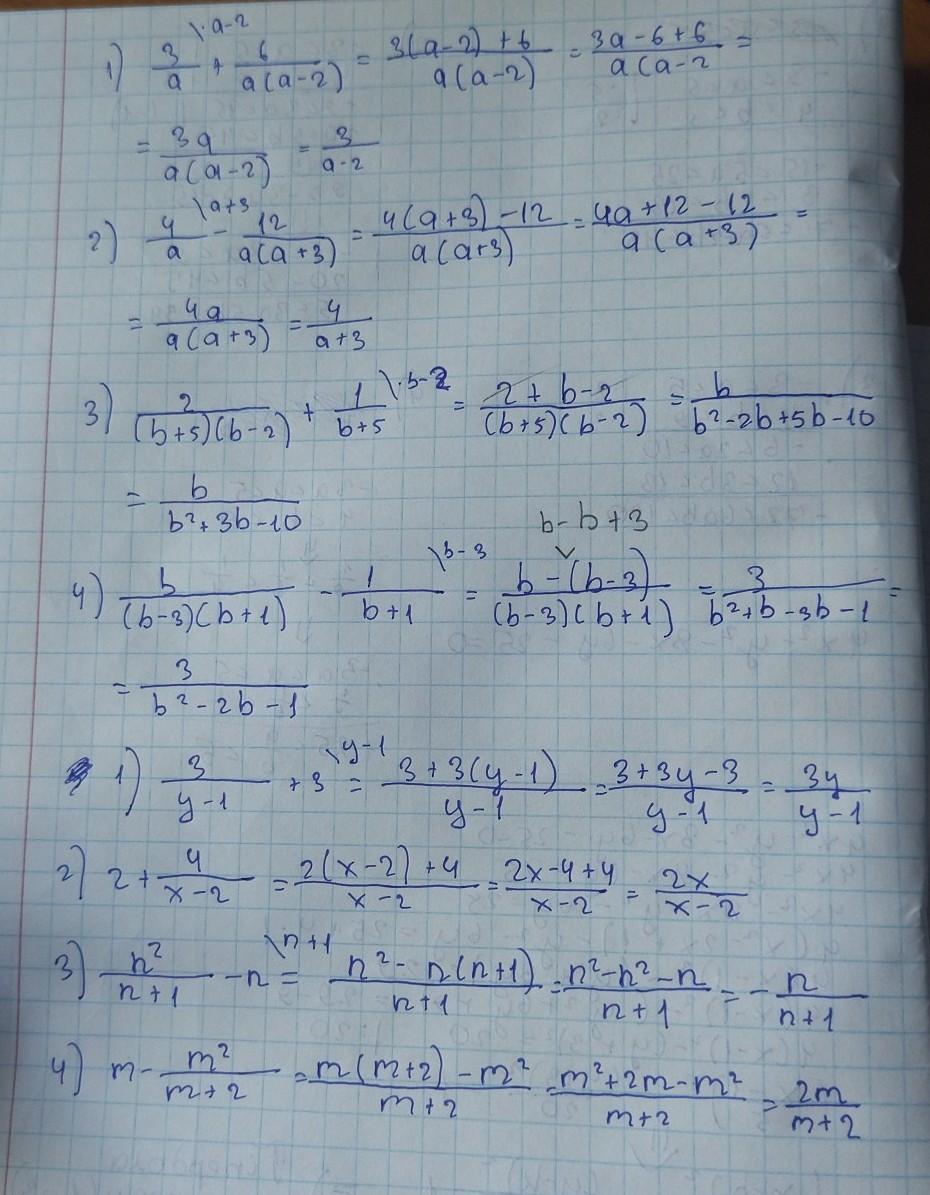 1) 3/a \·a-2 + 6/a(a-2) = 3(a-2)+6/a(a-2) = 3a-6+6/a(a-2 =
= 3a/a(a-2) = 3/a-2
2) 4/a \a+3 - 12/a(a+3) = 4(a+3)-12/a(a+3) = 4a+12-12/a(a+3) =
= 4a/a(a+3) = 4/a+3
3) 2/(b+5)(b-2) + 1/b+5 \·b-2 = 2+b-2/(b+5)(b-2) = b/b²-2b+5b-10
= b/b²+3b-10
b-b+3
4) b/(b-3)(b+1) - 1/b+1 \b-3 = b-(b-3)/(b-3)(b+1) = 3/b²+b-3b-1 =
= 3/b²-2b-1
1) 3/y-1 + 3 \y-1 = 3+3(y-1)/y-1 = 3+3y-3/y-1 = 3y/y-1
2) 2 + 4/x-2 = 2(x-2)+4/x-2 = 2x-4+4/x-2 = 2x/x-2
3) n²/n+1 - n \n+1 = n²-n(n+1)/n+1 = n²-n²-n/n+1 = - n/n+1
4) m - m²/m+2 = m(m+2)-m²/m+2 = m²+2m-m²/m+2 = 2m/m+2